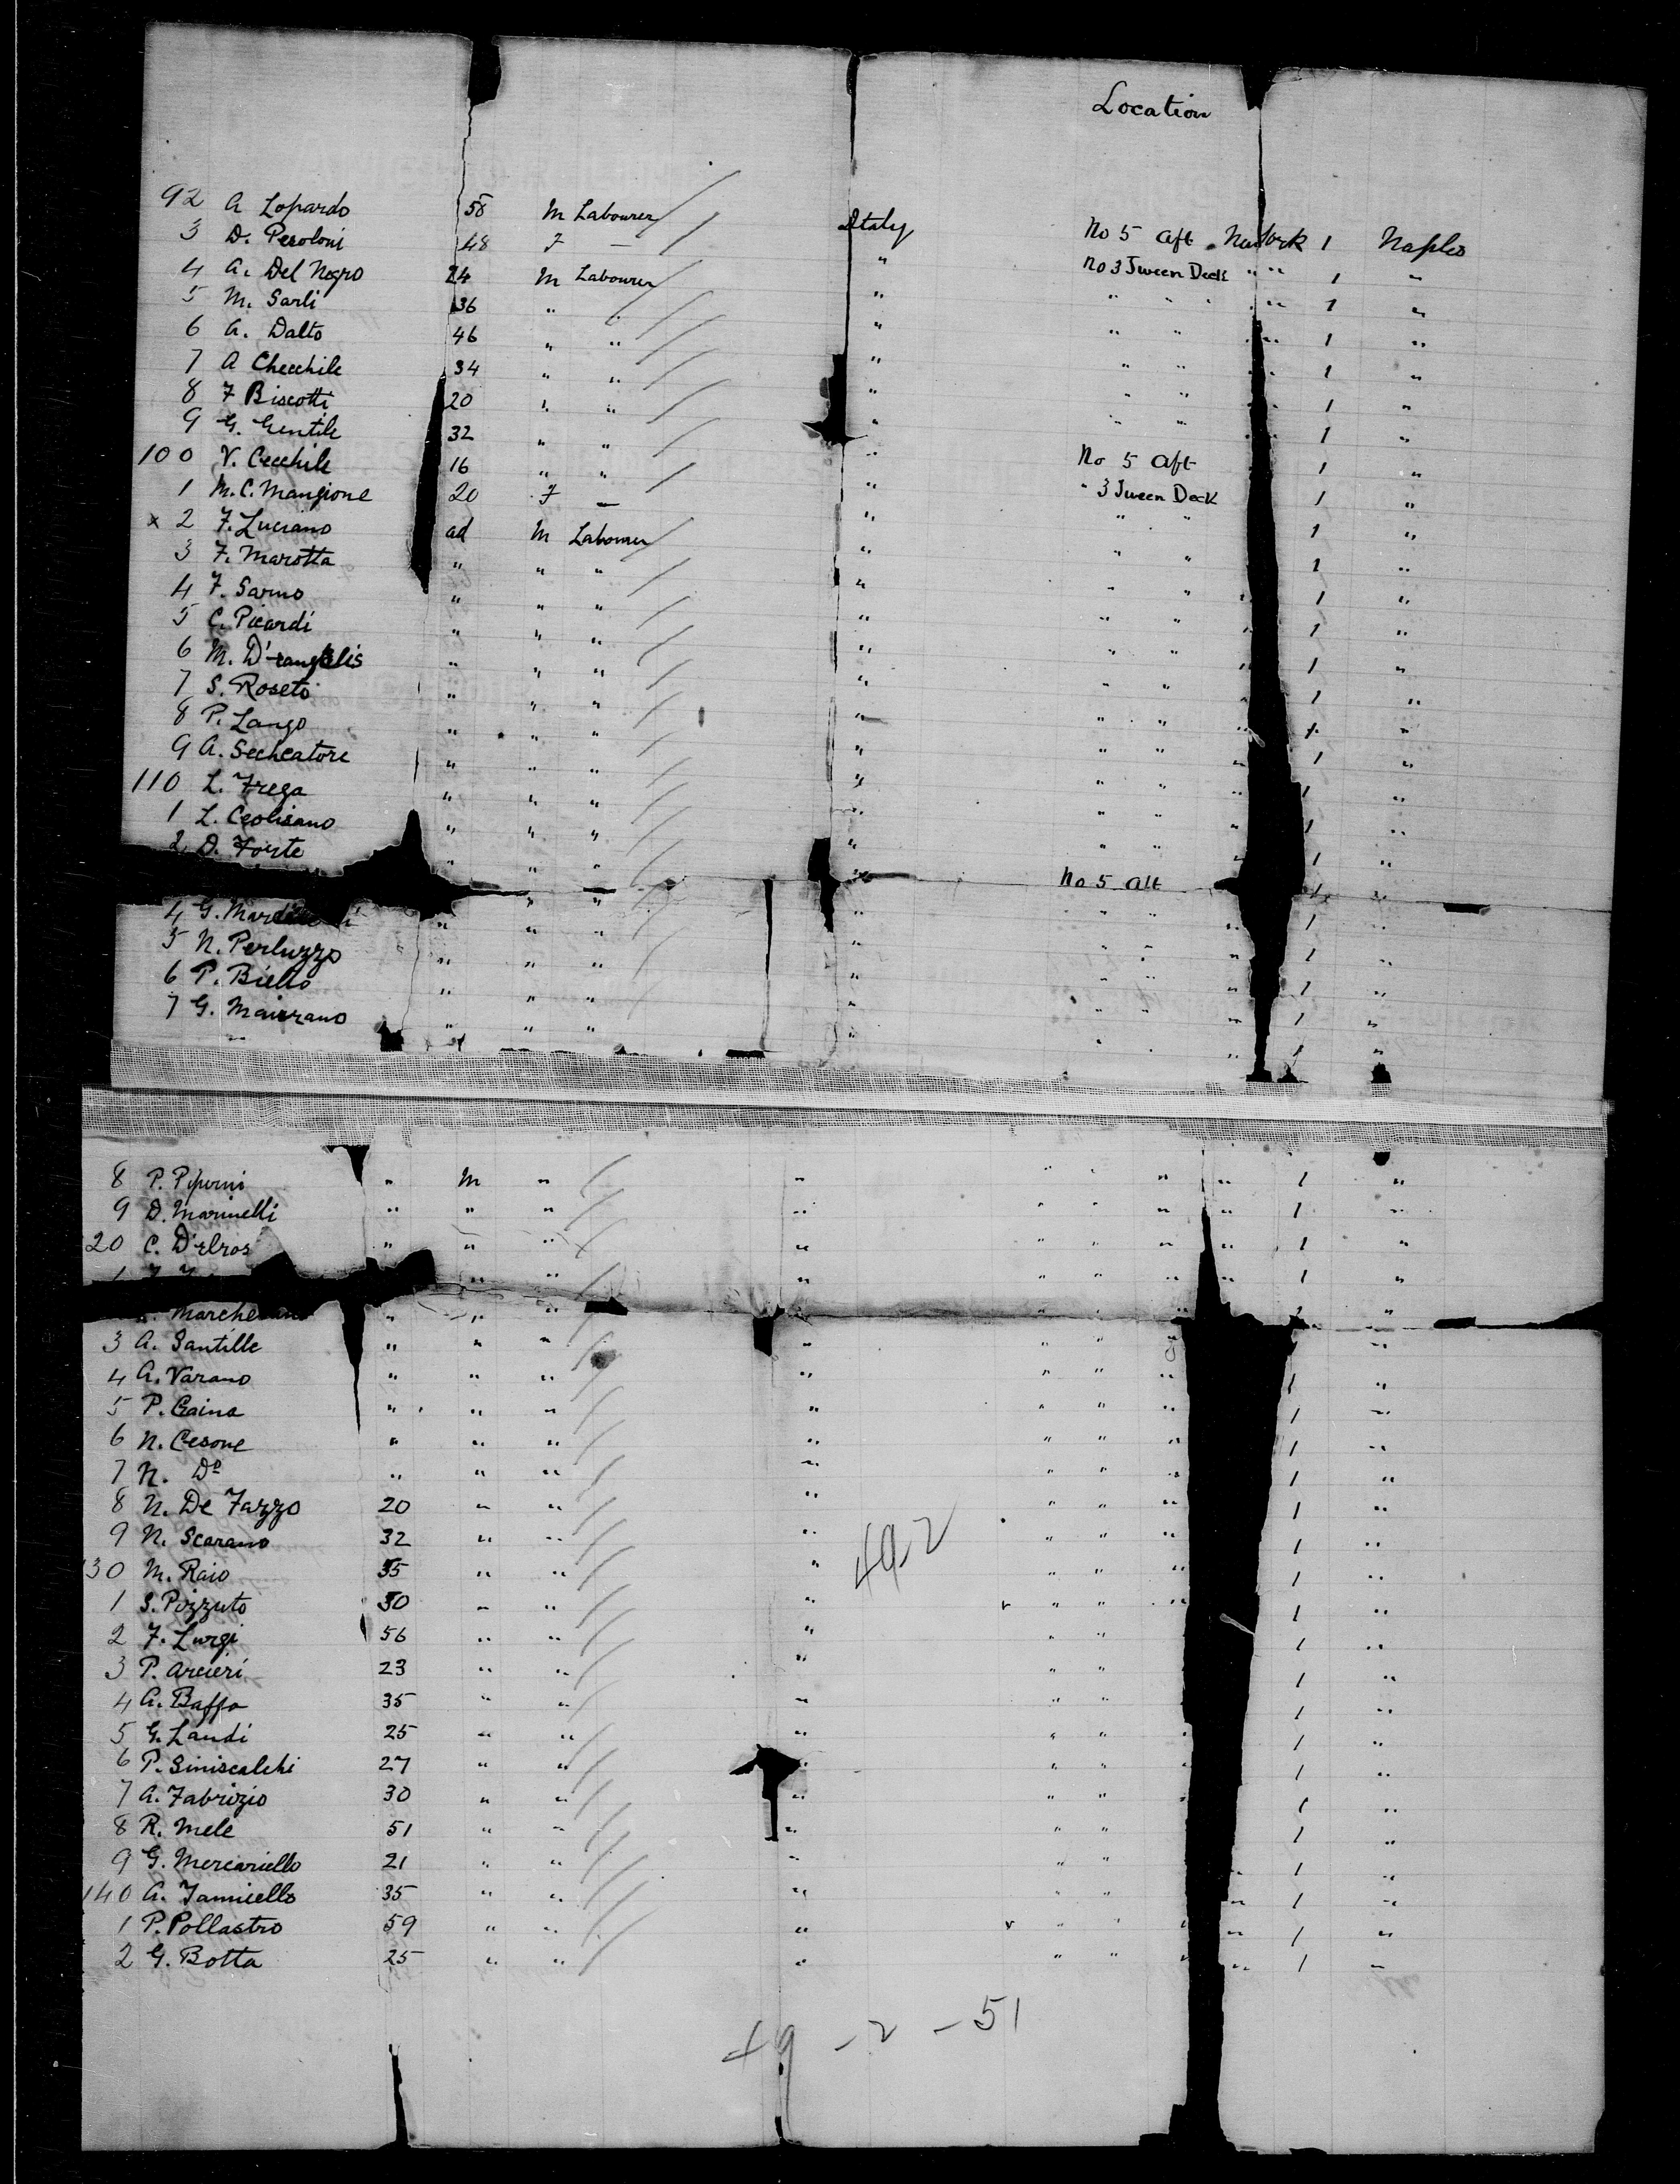 Location
92 A Lopardo 58 M Labourer Italy No 5 Aft New York 1 Naples
3 D. Peroloni 48 F — " No 3 Tween Deck " " 1 "
4 A. Del Negro 24 M Labourer " " " " " 1 "
5 M. Sarli 36 " " " " " " 1 "
6 A. Dalto 46 " " " " " " 1 "
7 A Checchile 34 " " " " " " 1 "
8 F Biscotti 20 " " " " " " 1 "
9 G. Gentile 32 " " " No 5 Aft 1 "
100 V. Cecchile 16 " " " " 3 Tween Deck 1 "
1 M. C. Mangione 20 F — " " " 1 "
x 2 F. Luciano ad M Labourer " " " 1 "
3 F. Marotta " " " " " " 1 "
4 F. Sarno " " " " " " 1 "
5 C. Picardi " " " " " " 1 "
6 M. D'rangelis " " " " " " 1 "
7 S. Roseto " " " " " " 1 "
8 P. Lango " " " " " " 1 "
9 A. Seccheatore " " " " " " 1 "
110 L. Frega " " " " " " 1 "
1 L. Ceolisano " " " " " " 1 "
2 D. Forte " " " " No 5 Aft 1 "
4 G. " " " " " " 1 "
5 N. Perluzzo " " " " " " 1 "
6 P. Biello " " " " " " 1 "
7 G. Mairano " " " " " " 1 "
8 P. Piperni " M " " " " " " 1 "
9 D. Marinelli " " " " " " " " 1 "
20 C. D'elros " " " " " " " " 1 "
" " " " " " " 1 "
" " " " " " "
3 A. Santille " " " " " " " 1 "
4 A. Varano " " " " " " " 1 "
5 P. Gaina " " " " " " " 1 "
6 N. Cesone " " " " " " " 1 "
7 N. Do " " " " " " " 1 "
8 N. De Fazzo 20 " " " " " " 1 "
9 N. Scarano 32 " " " " " " 1 "
130 M. Raio 35 " " " " " " 1 "
1 S. Pozzuto 30 " " " " " " 1 "
2 F. Lurgi 56 " " " " " 1 "
3 P. Arcieri 23 " " " " " 1 "
4 A. Baffa 35 " " " " " 1 "
5 G. Landi 25 " " " " " " 1 "
6 P. Siniscalchi 27 " " " " " " 1 "
7 A. Fabrizio 30 " " " " " 1 "
8 R. Mele 51 " " " " " 1 "
9 G. Mercariello 21 " " " " " " 1 "
140 A. Iannicello 35 " " " " " " 1 "
1 P. Pollastro 59 " " " " " " " 1 "
2 G. Botta 25 " " " " " " " 1 "
49-2
49 - 2 - 51